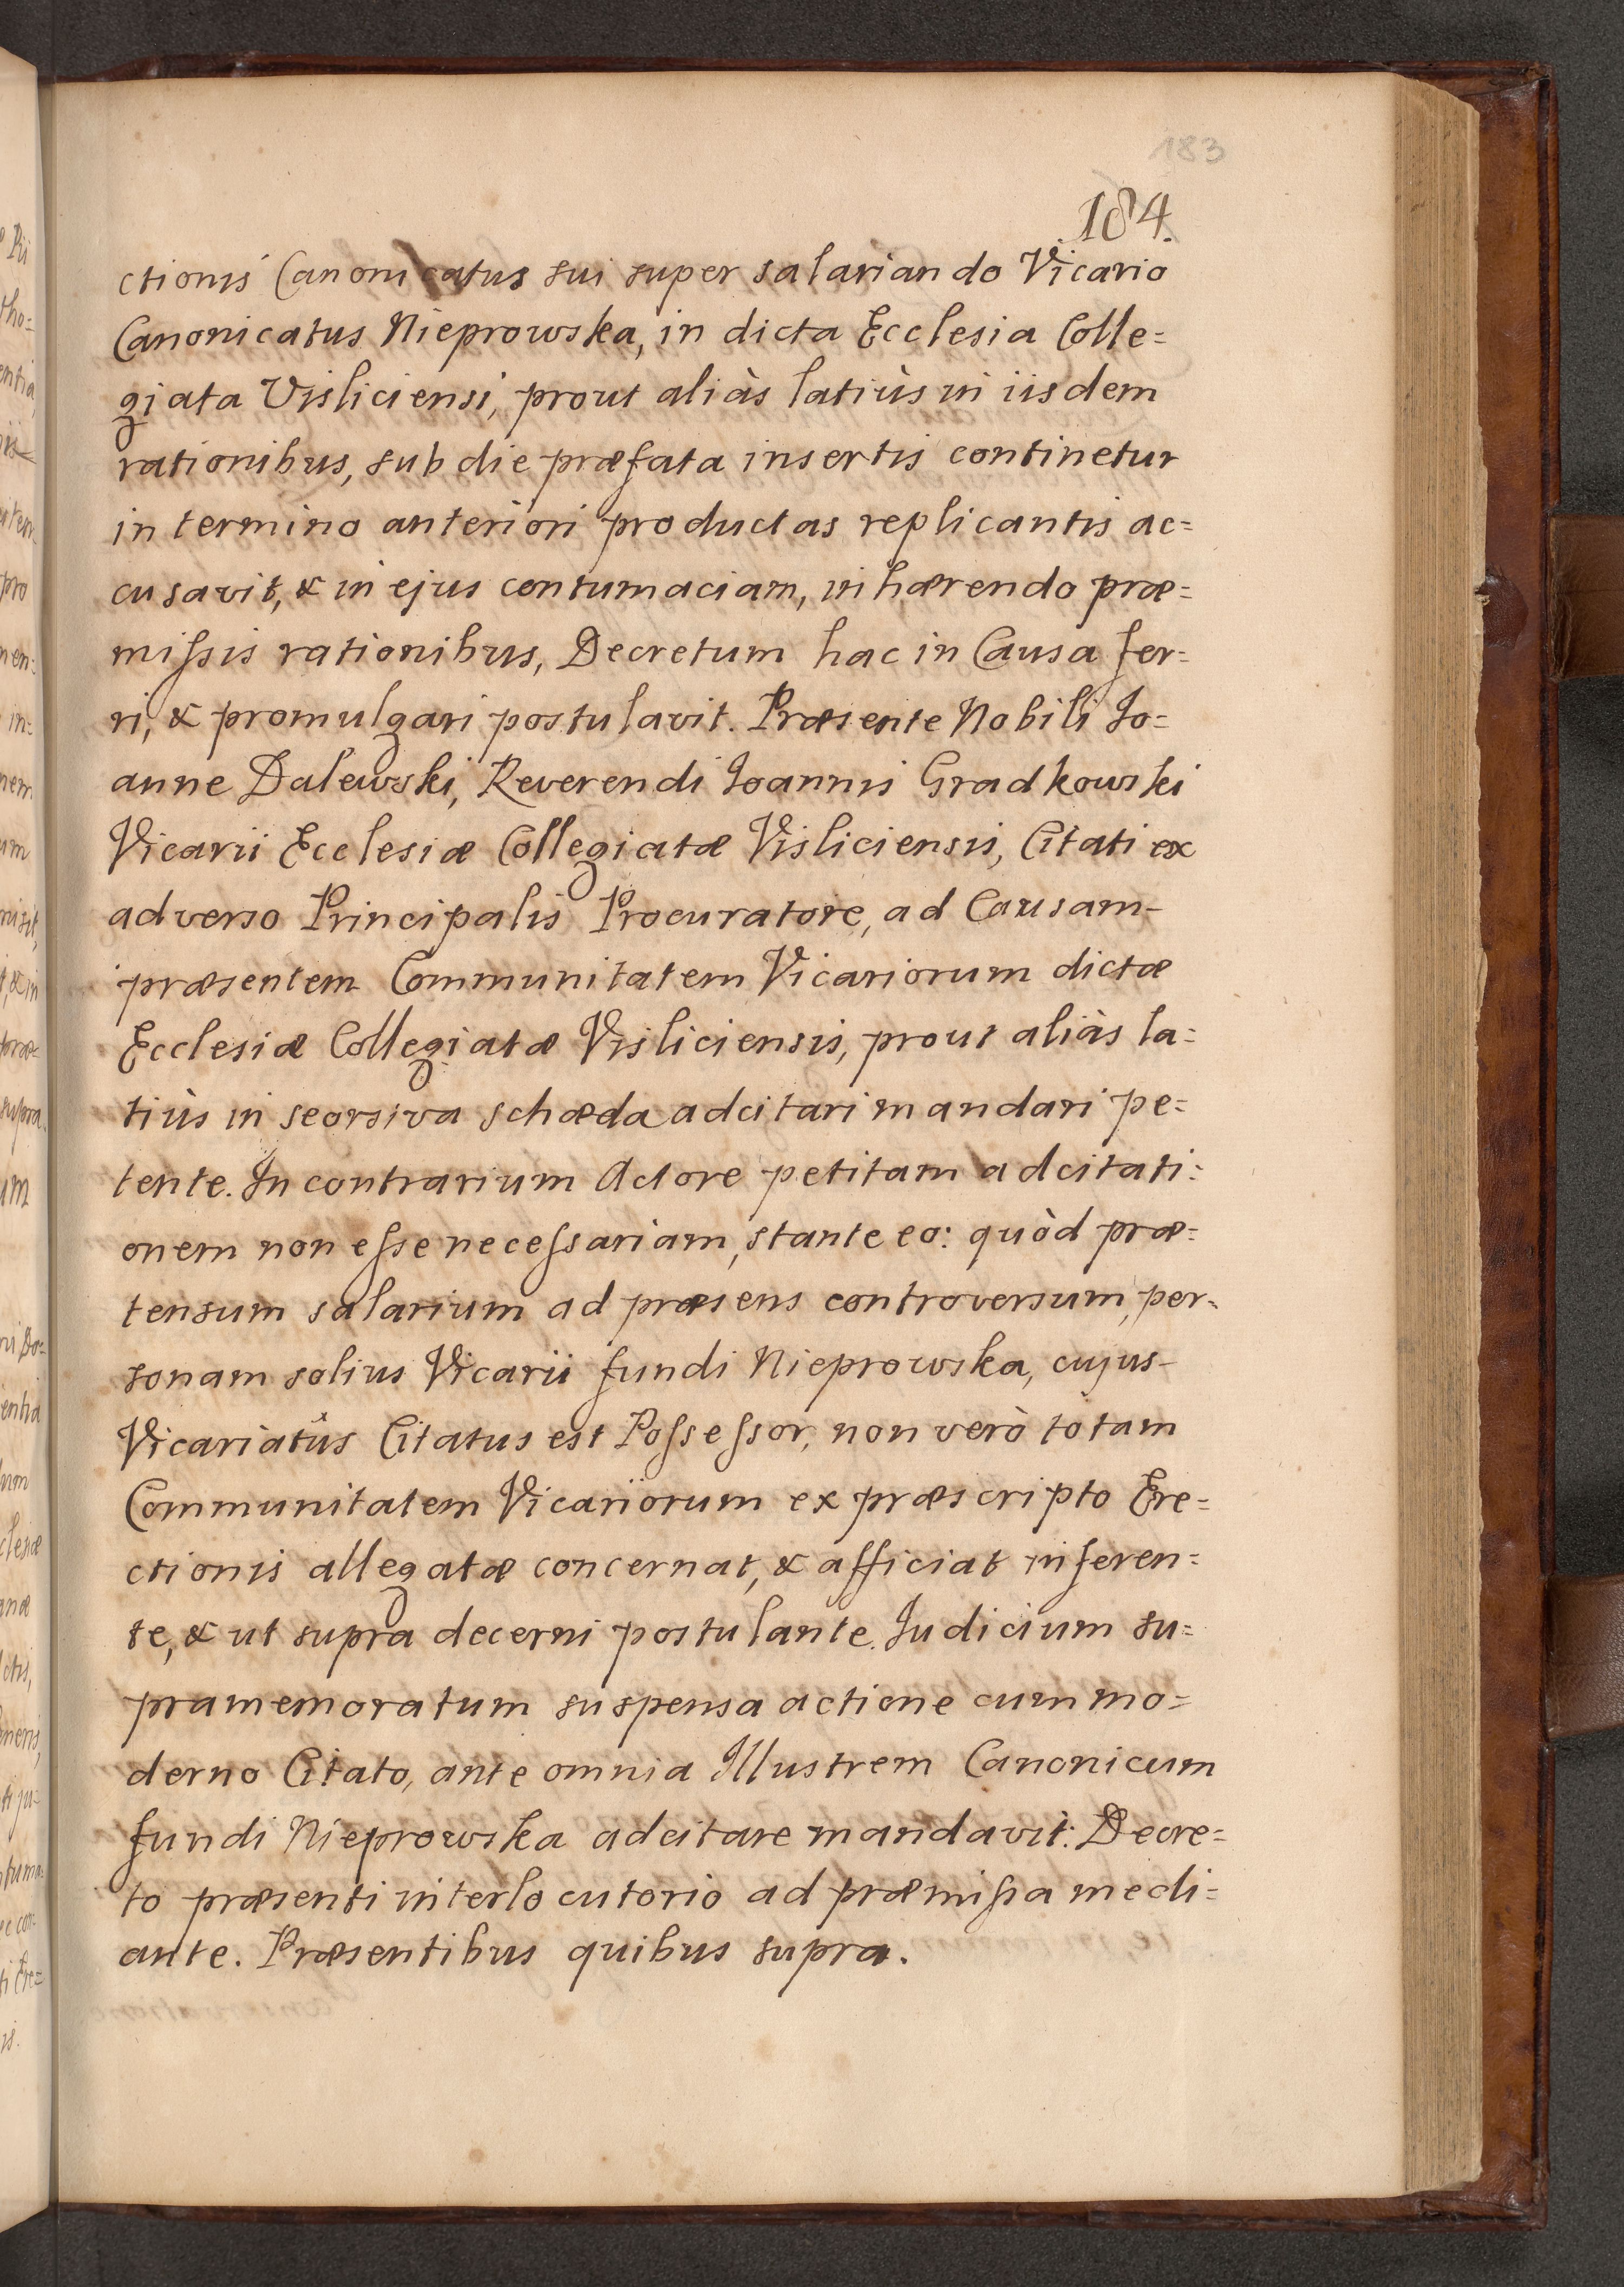 183
184.
ctionis Canonicatus sui super salariando Vicario
Canonicatus Nieprowska, in dicta Ecclesia Colle=
giata Visliciensi, prout aliàs latiùs in iisdem
rationibus, sub die præfata insertis continetur
in termino anteriori productas replicantis ac=
cusavit, & in ejus contumaciam, inhærendo præ=
missis rationibus, Decretum hac in Causa fer=
ri, & promulgari postulavit. Præsente Nobili Jo=
anne Dalewski, Reverendi Joannis Gradkowski
Vicarii Ecclesiæ Collegiatæ Visliciensis, Citati ex
adverso Principalis Procuratore, ad Causam
præsentem Communitatem Vicariorum dictæ
Ecclesiæ Collegiatæ Visliciensis, prout aliàs la=
tiùs in seorsiva schæda adcitari mandari pe=
tente. In contrarium Actore petitam adcitati=
onem non esse necessariam, stante eo: quòd præ=
tensum salarium ad præsens controversum, per=
sonam solius Vicarii fundi Nieprowska, cujus
Vicariatûs Citatus est Possessor, non verò totam
Communitatem Vicariorum ex præscripto Ere=
ctionis allegatæ concernat, & afficiat inferen=
te, & ut supra decerni postulante. Judicium su=
pramemoratum suspensa actione cum mo=
derno Citato, ante omnia Illustrem Canonicum
fundi Nieprowska adcitare mandavit: Decre=
to præsenti interlocutorio ad præmissa medi=
ante. Præsentibus quibus supra.